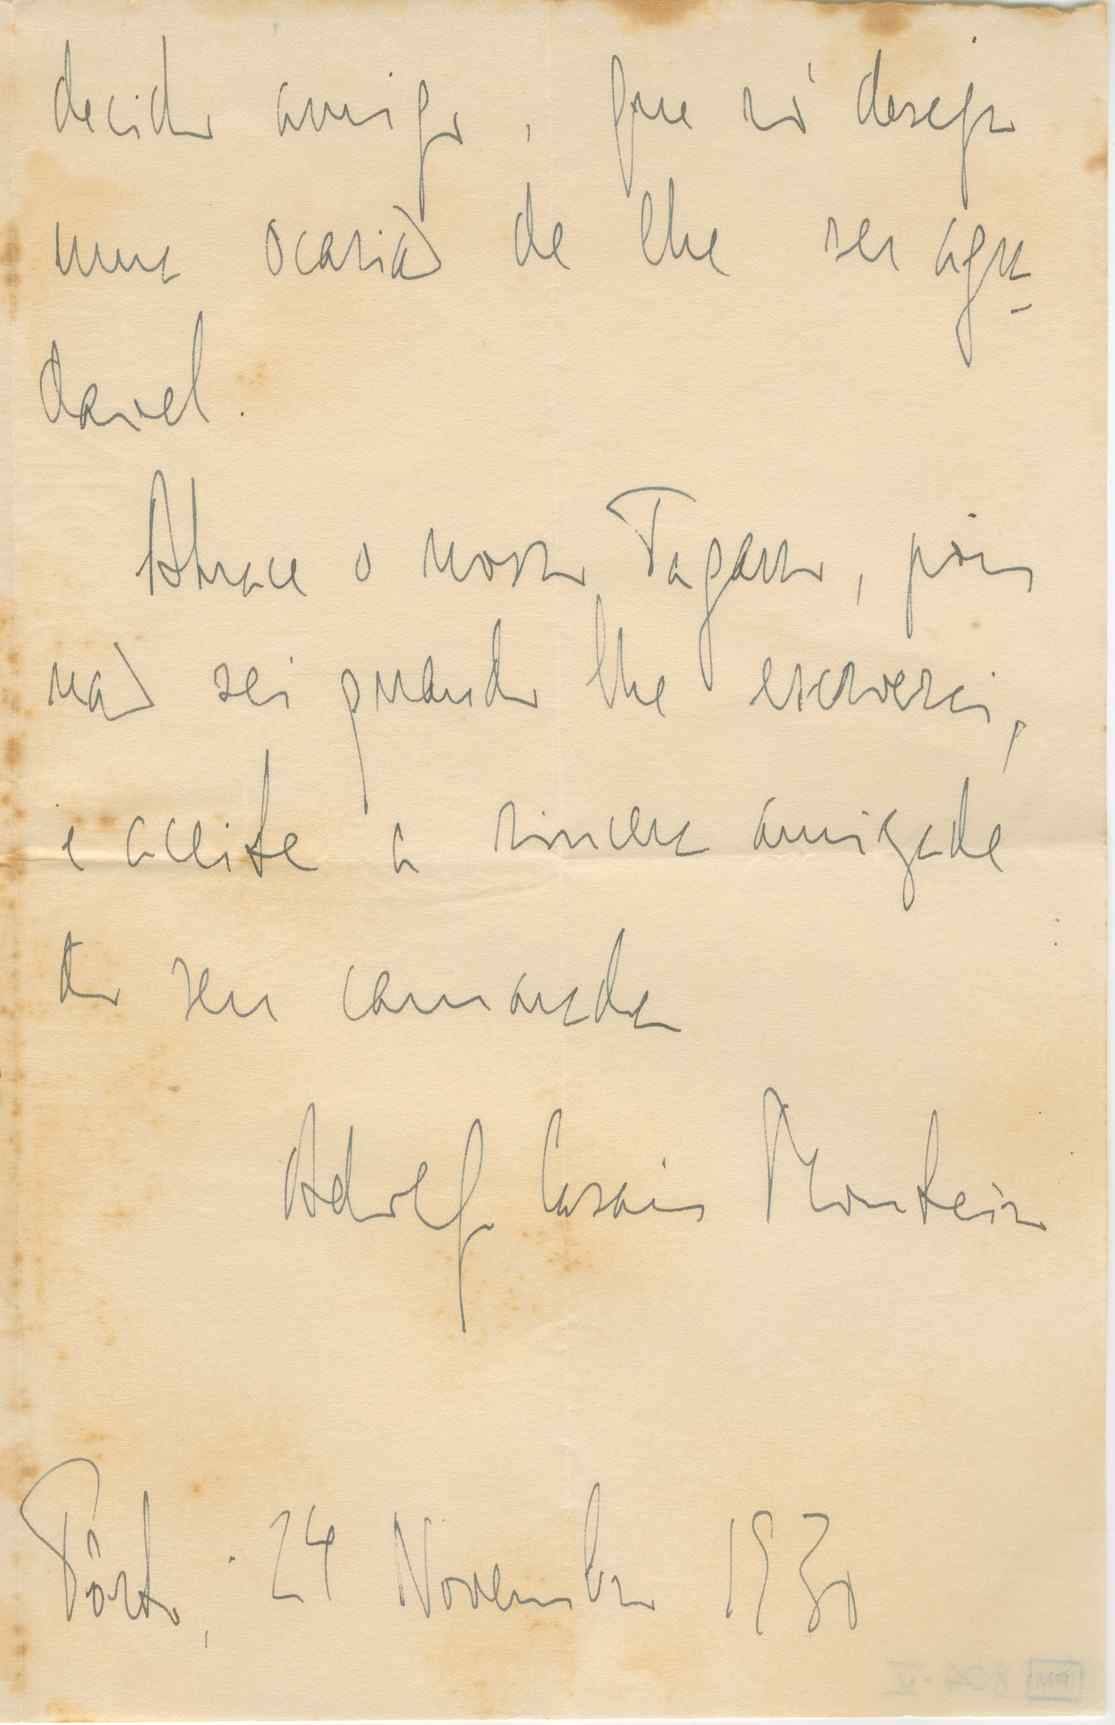 decido amigo, que só deseja
uma ocasião de lhe ser agra-
davel.
Abrace o nosso Tagarro, pois
não sei quando lhe escreverei,
e aceite a sincera amizade
do seu camarada
Adolfo Casais Monteiro
Pôrto, 24 Novembro 1930